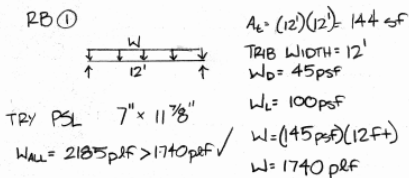 RB ①
W
12'
TRY PSL 7" × 11 7/8"
WALL = 2185 plf > 1740 plf ✓
At = (12')(12') = 144 sf
TRIB WIDTH = 12'
WD = 45 psf
WL = 100 psf
W = (145 psf)(12 ft)
W = 1740 plf